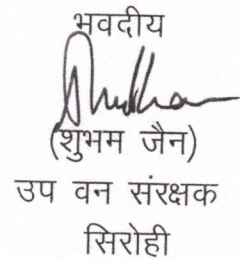 भवदीय
(शुभम जैन)
उप वन संरक्षक
सिरोही